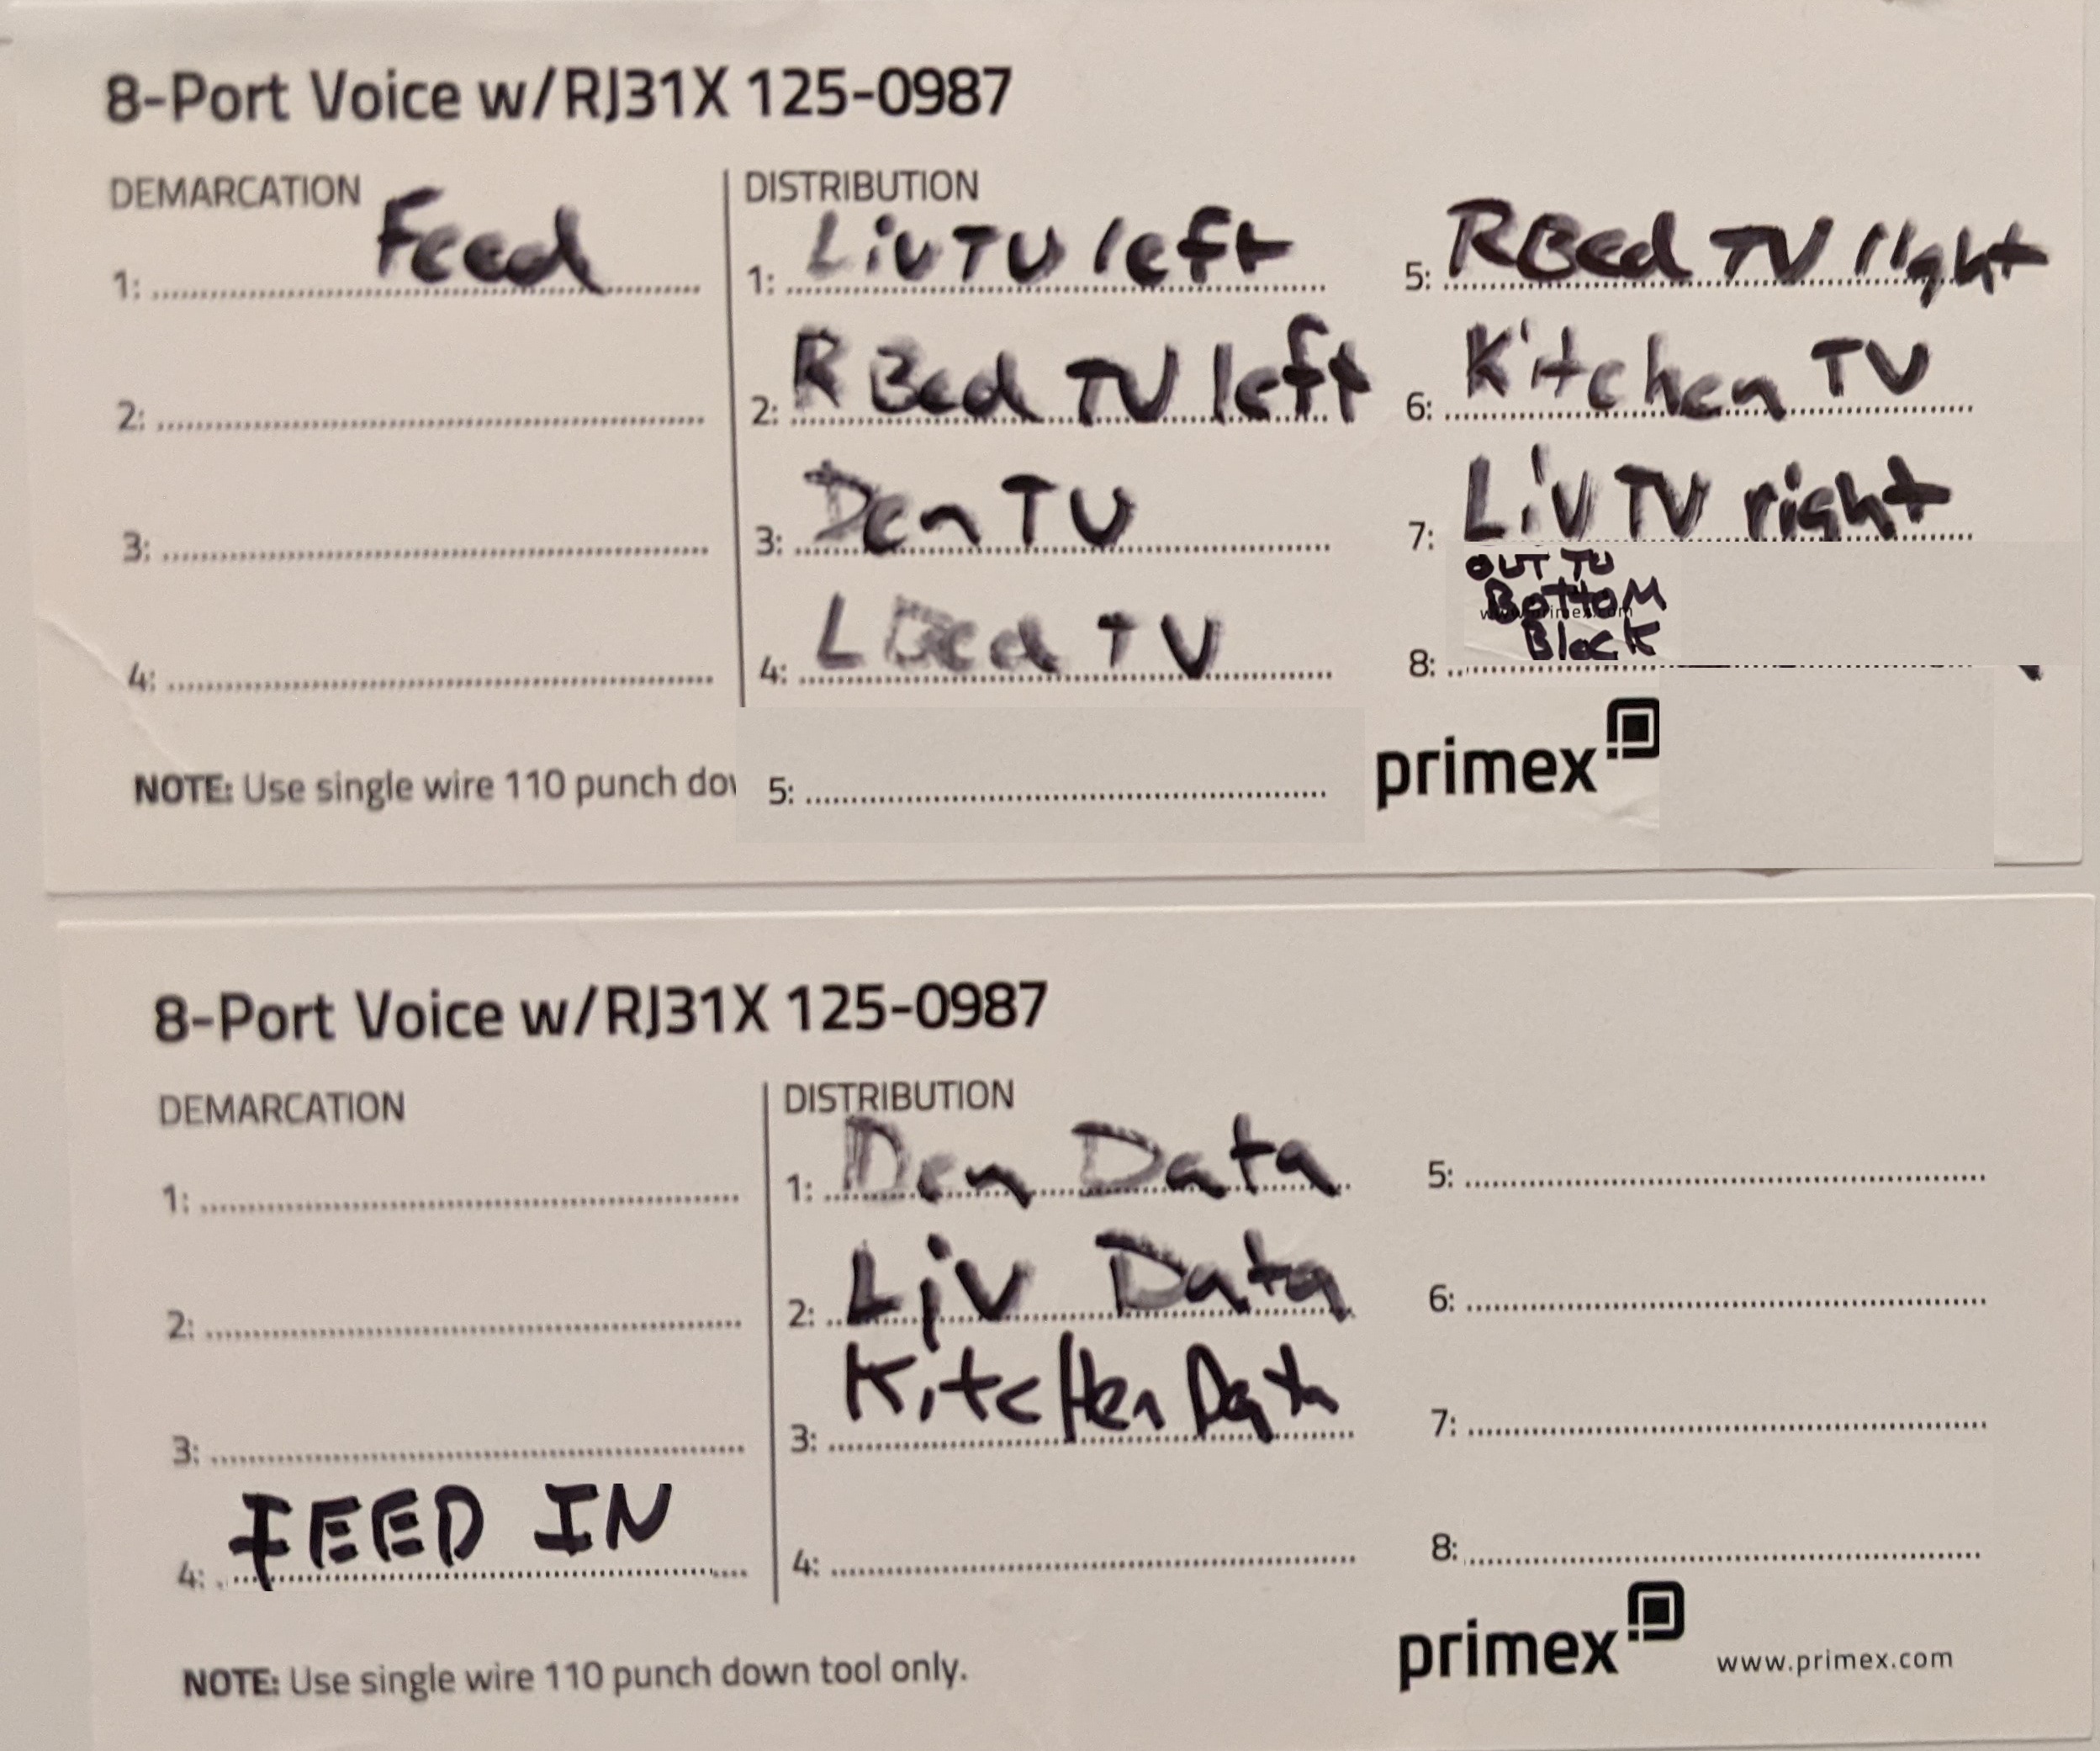 8-Port Voice w/RJ31X 125-0987
DEMARCATION
Feed
1:
2:
3:
4:
DISTRIBUTION
1: Liv TV left
2: R Bed TV left
3: Den TV
4: L Bed TV
5:
5: R Bed TV right
6: Kitchen TV
7: Liv TV right
OUT TO
BOTTOM
www.primex.com
8: Block
NOTE: Use single wire 110 punch
primex
8-Port Voice w/RJ31X 125-0987
DEMARCATION
1:
2:
3:
4: FEED IN
DISTRIBUTION
1: Den Data
2: Liv Data
3: KitcHen Data
4:
5:
6:
7:
8:
NOTE: Use single wire 110 punch down tool only.
primex www.primex.com